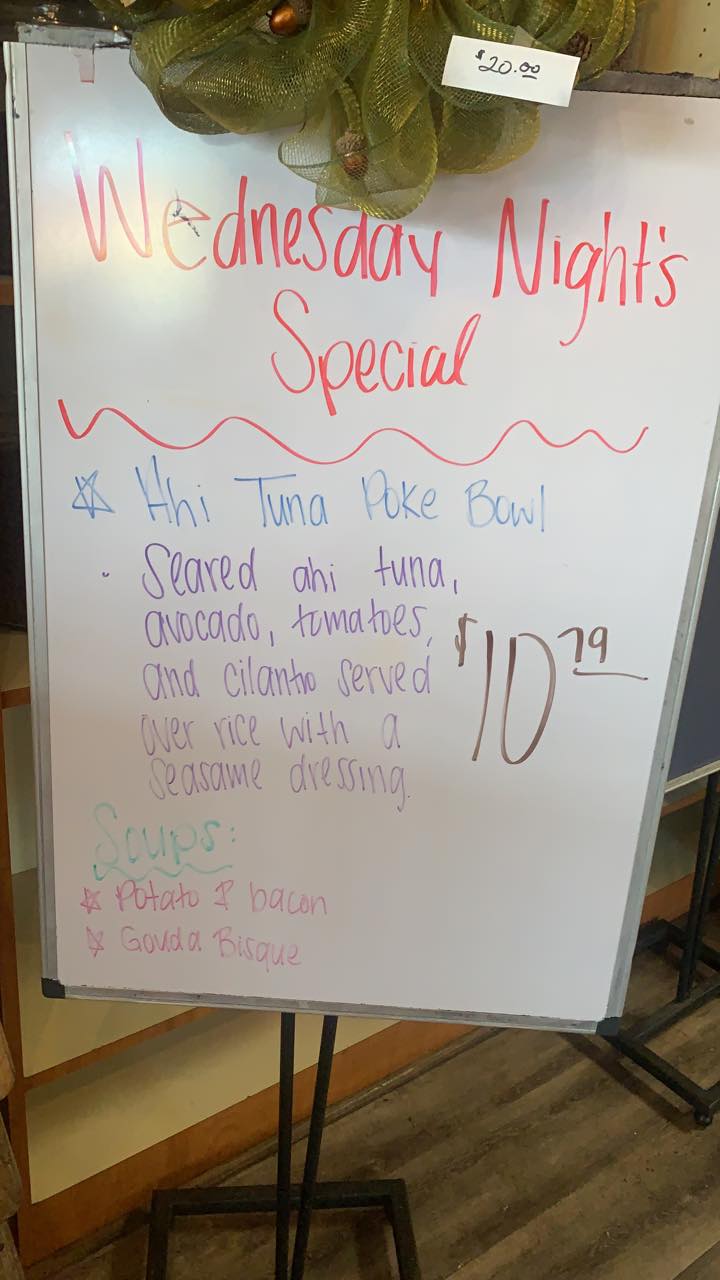 $20.00
Wednesday Night's
Special
Ahi Tuna Poke Bowl
• Seared ahi tuna,
avocado, tomatoes,
and cilantro served
over rice with a
seasame dressing.
$10 79
Soups:
Potato & bacon
Gouda Bisque